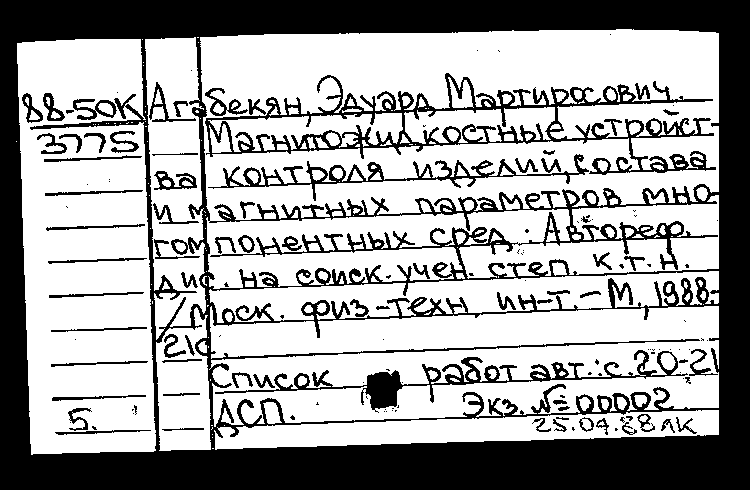 88-50К Агабекян, Эдуард Мартиросович.
3775 Магнитожидкостные устройст-
ва контроля изделий, состава
и магнитных параметров мно-
гомпонентных сред : Автореф.
дис. на соиск. учен. степ. к.т.н.
/Моск. физ.-техн. ин-т. - М., 1988.-
21с.
Список работ авт.: с. 20-21
5. ДСП. Экз. № 00002
25.04.88 ЛК